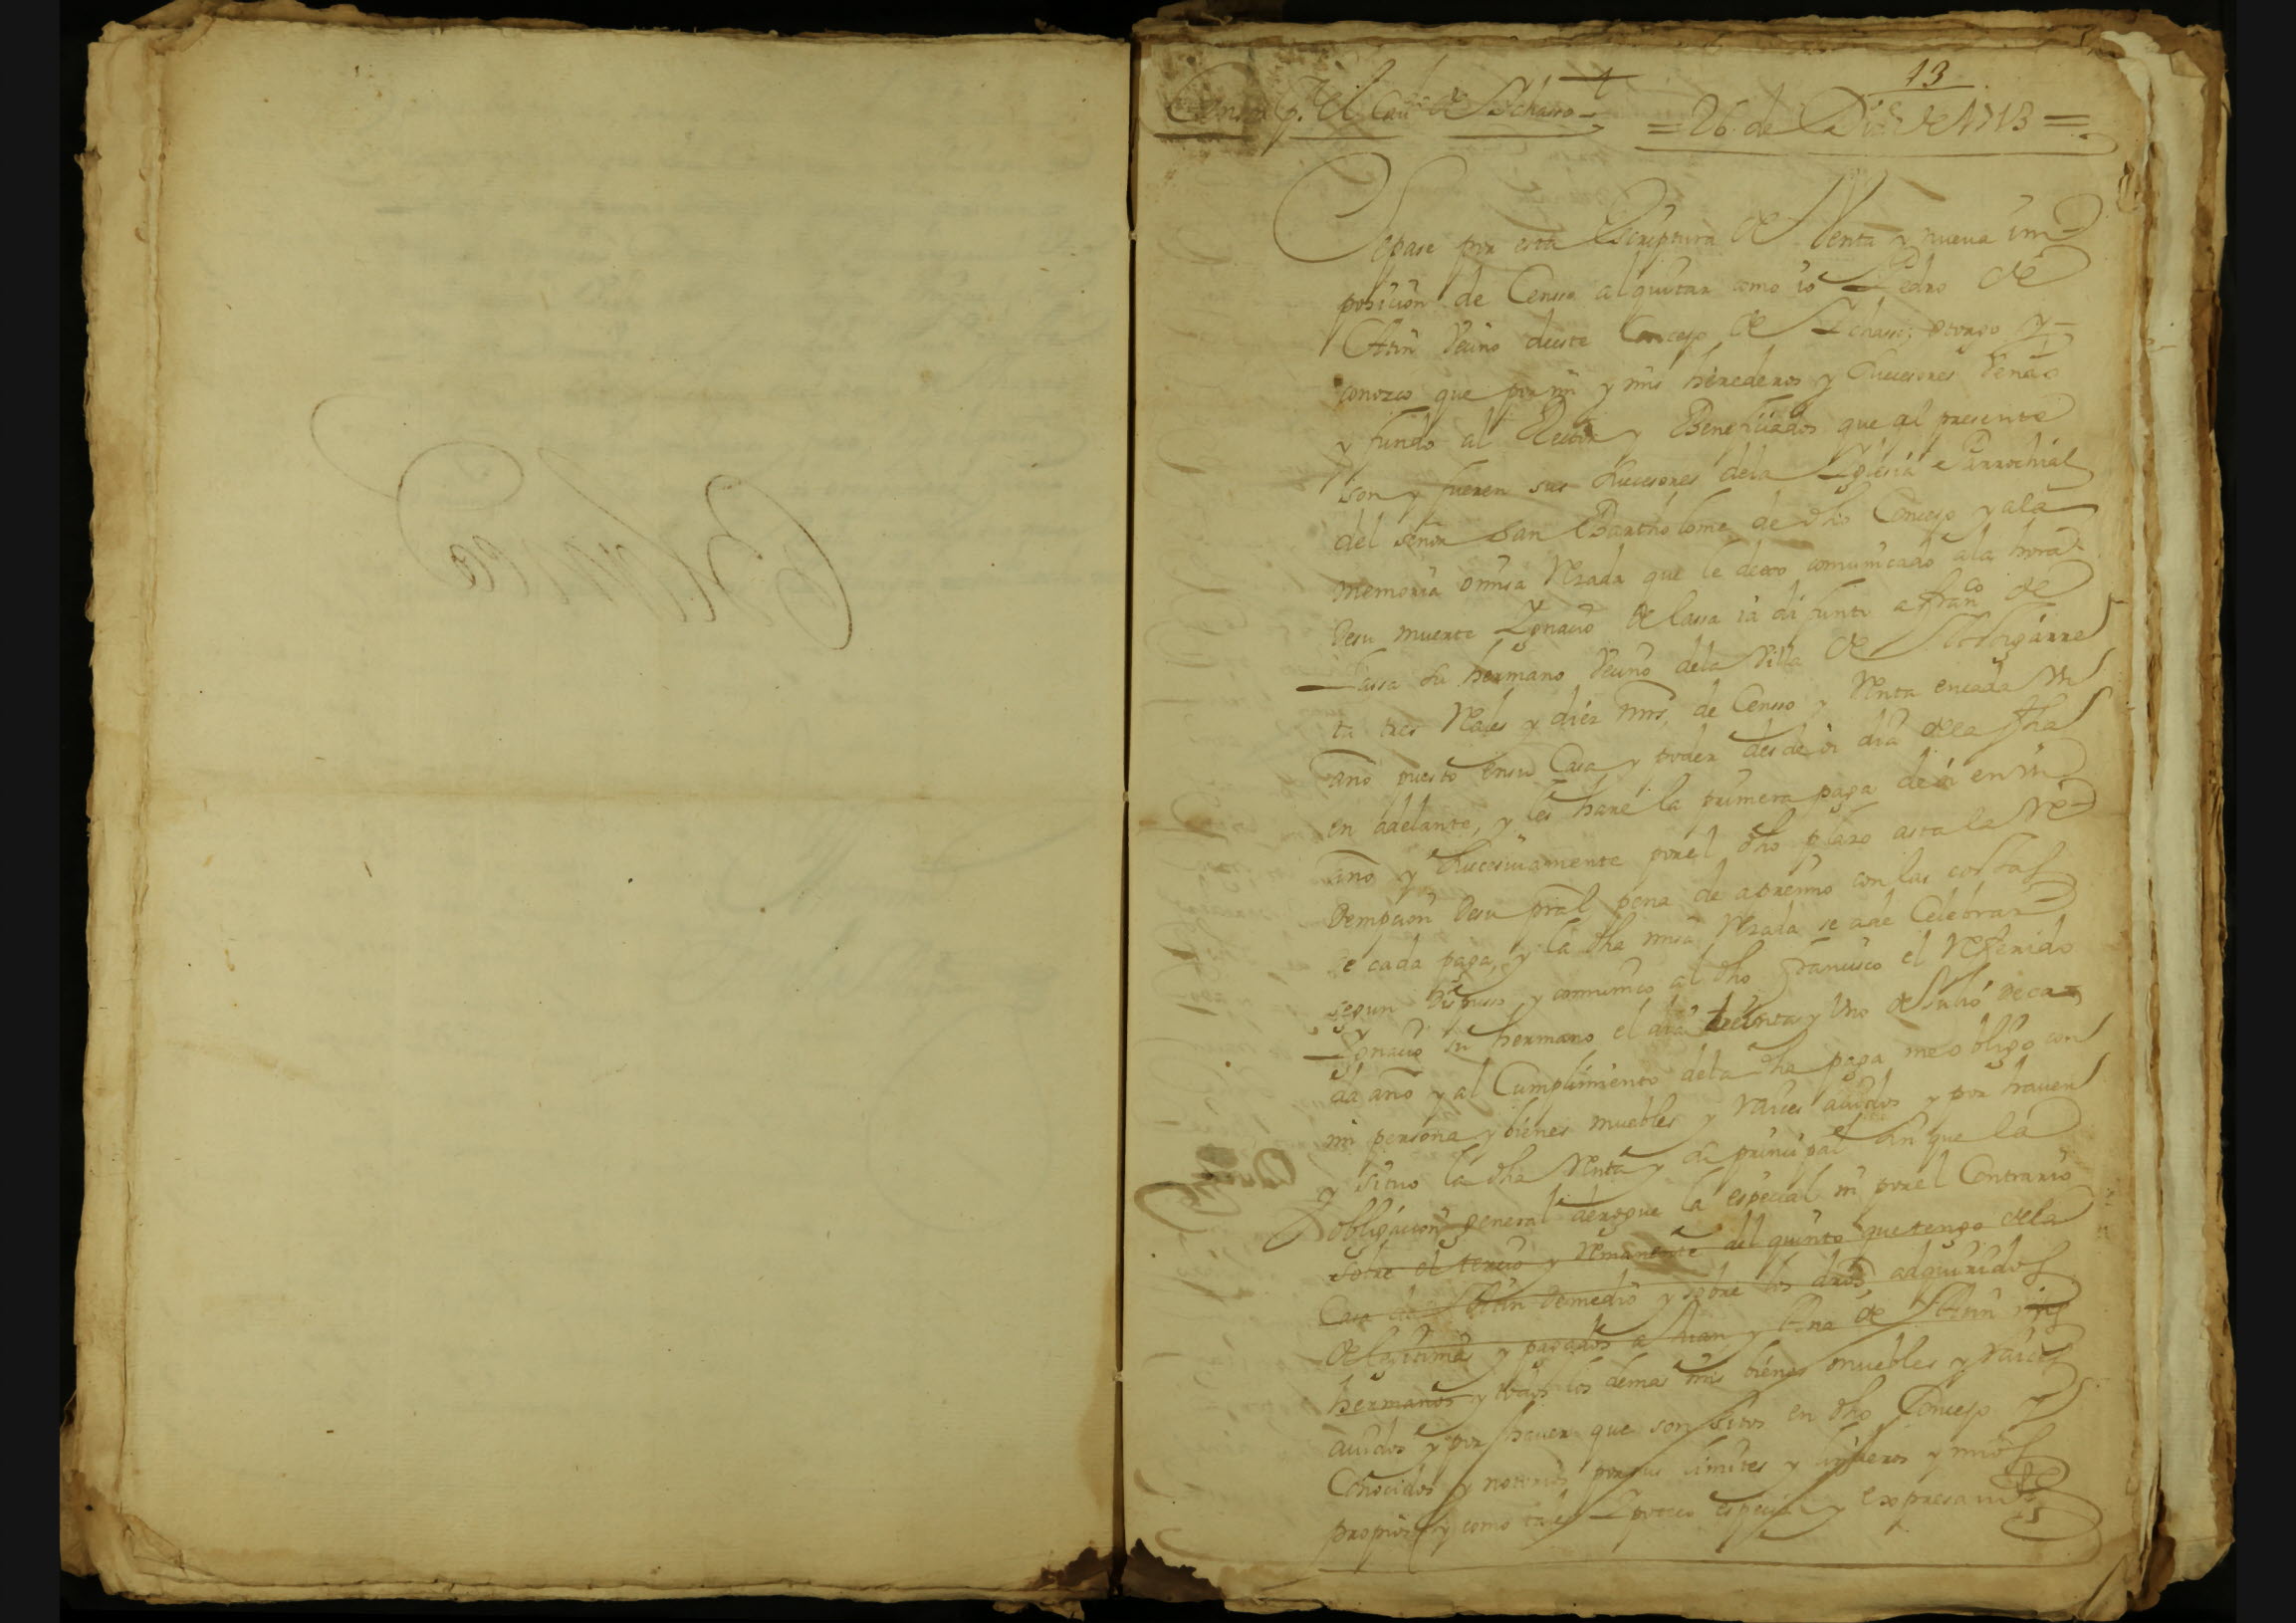 13
Censo p.r el Cau.do de Ichasso = 26 de Diz.e de 1713 =
Sepase por esta Escriptura de Venta y nueua im
posicion de Censso al quitar como io Pedro de
Atin Vecino deeste Concejo de Ichasso; otorgo y
conozco que por mi y mis herederos y Sucesores Vendo
y fundo al Rector y Beneficiados que al presente
son y fueren sus Sucesores dela Iglesia Parrochial
del señor San Bartholome de dho Concejo y ala
memoria o misa Rezada que le dexo comunicado ala hora
desu muerte Ignacio de Lassa ia difunto a Fran.co de
Lassa su hermano Vecino dela Villa de
ta tres Reales y diez mrs, de Censso y Renta encada Vn
año puesto ensu Casa y poder desde oi dia dela fha
en adelante, y les hare la primera paga de oi en Vn
año y Sucesiuamente porel dho plazo asta la Re
dempcion desu pral pena de apremio con las costas
de cada paga, y la dha misa Rezada se ade Celebrar
segun dispusso y comunico al dho Francisco el Referido
Ignacio su hermano el dia treinta y Vno de Julio de ca
da año y al Cumplimiento dela dha paga me obligo con
mi persona y bienes muebles y raices auidos y por hauer
y situo la dha Renta y su principal sin que la
obligacion general derogue la especial ni porel Contrario
sobre el tercio y Remanente del quinto que tengo dela
Casa de Atin demedio y sobre los dros, adquiridos
de legitimas y pagados a Juan y Ana de Atin mis
hermanos y todos los demas mis bienes muebles y raices
auidos y por hauer que son sitos en dho Concejo y
Conocidos y notorios por sus limites y linderos y mios
propios y como tales Ipoteco especial y expresam.te